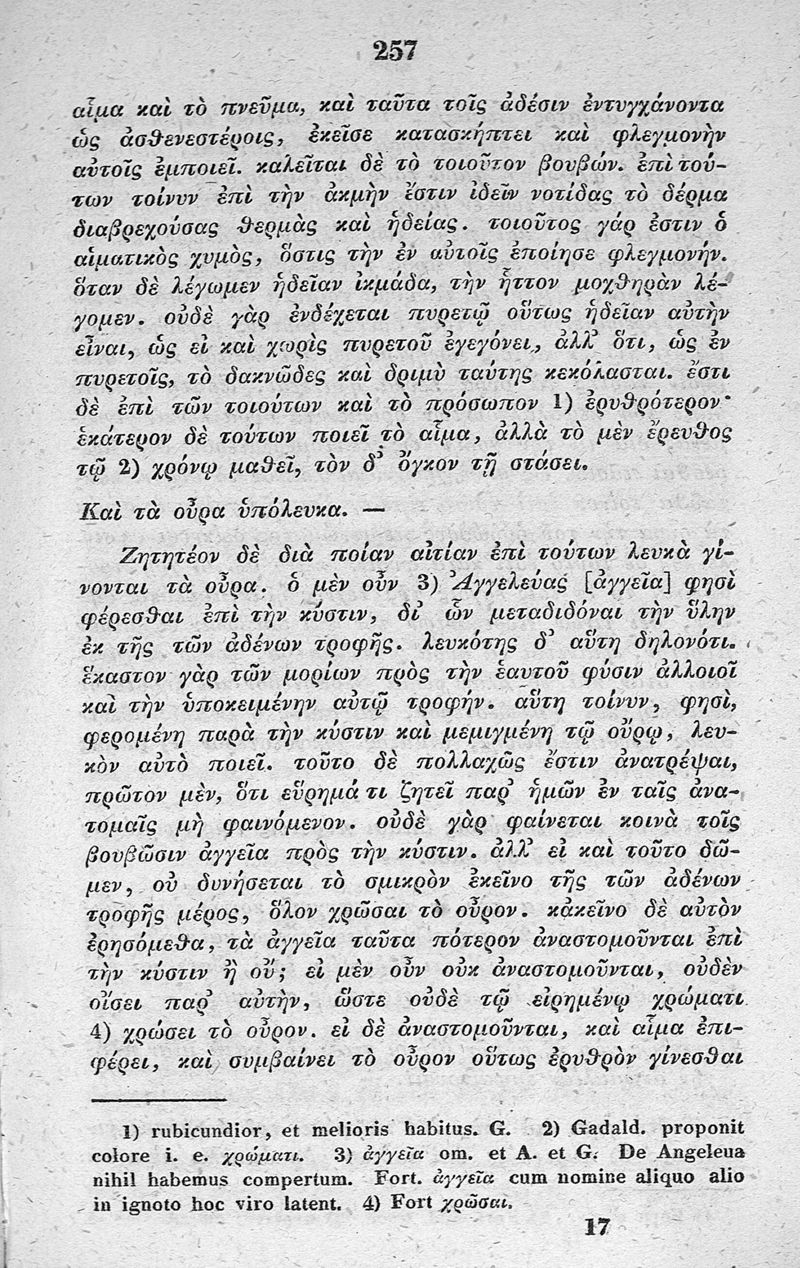 257
αἷμα καὶ τὸ πνεῦμα, καὶ ταῦτα τοῖς ἀδέσιν ἐντυγχάνοντα
ὡς ἀσθενεστέροις, ἐκεῖσε κατασκήπτει καὶ φλεγμονὴν
αὐτοῖς ἐμποιεῖ. καλεῖται δὲ τὸ τοιοῦτον βουβών. ἐπὶ τού-
των τοίνυν ἐπὶ τὴν ἀκμὴν ἔστιν ἰδεῖν νοτίδας τὸ δέρμα
διαβρεχούσας θερμὰς καὶ ἡδείας. τοιοῦτος γάρ ἐστιν ὁ
αἱματικὸς χυμὸς, ὅστις τὴν ἐν αὐτοῖς ἐποίησε φλεγμονήν.
ὅταν δὲ λέγωμεν ἡδεῖαν ἰκμάδα, τὴν ἧττον μοχθηρὰν λέ-
γομεν. οὐδὲ γὰρ ἐνδέχεται πυρετῷ οὕτως ἡδεῖαν αὐτὴν
εἶναι, ὡς εἰ καὶ χωρὶς πυρετοῦ ἐγεγόνει, ἀλλ᾽ ὅτι, ὡς ἐν
πυρετοῖς, τὸ δακνῶδες καὶ δριμὺ ταύτης κεκόλασται. ἔστι
δὲ ἐπὶ τῶν τοιούτων καὶ τὸ πρόσωπον 1) ἐρυθρότερον·
ἑκάτερον δὲ τούτων ποιεῖ τὸ αἷμα, ἀλλὰ τὸ μὲν ἔρευθος
τῷ 2) χρόνῳ μαθεῖ, τὸν δ᾽ ὄγκον τῇ στάσει.
Καὶ τὰ οὖρα ὑπόλευκα. —
Ζητητέον δὲ διὰ ποίαν αἰτίαν ἐπὶ τούτων λευκὰ γί-
νονται τὰ οὖρα. ὁ μὲν οὖν 3) Ἀγγελεύας [ἀγγεῖα] φησὶ
φέρεσθαι ἐπὶ τὴν κύστιν, δι᾽ ὧν μεταδιδόναι τὴν ὕλην
ἐκ τῆς τῶν ἀδένων τροφῆς. λευκότης δ᾽ αὕτη δηλονότι.
ἕκαστον γὰρ τῶν μορίων πρὸς τὴν ἑαυτοῦ φύσιν ἀλλοιοῖ
καὶ τὴν ὑποκειμένην αὐτῷ τροφήν. αὕτη τοίνυν, φησὶ,
φερομένη παρὰ τὴν κύστιν καὶ μεμιγμένη τῷ οὔρῳ, λευ-
κὸν αὐτὸ ποιεῖ. τοῦτο δὲ πολλαχῶς ἔστιν ἀνατρέψαι,
πρῶτον μὲν, ὅτι εὕρημά τι ζητεῖ παρ᾽ ἡμῶν ἐν ταῖς ἀνα-
τομαῖς μὴ φαινόμενον. οὐδὲ γὰρ φαίνεται κοινὰ τοῖς
βουβῶσιν ἀγγεῖα πρὸς τὴν κύστιν. ἀλλ᾽ εἰ καὶ τοῦτο δῶ-
μεν, οὐ δυνήσεται τὸ σμικρὸν ἐκεῖνο τῆς τῶν ἀδένων
τροφῆς μέρος, ὅλον χρῶσαι τὸ οὖρον. κἀκεῖνο δὲ αὐτὸν
ἐρησόμεθα, τὰ ἀγγεῖα ταῦτα πότερον ἀναστομοῦνται ἐπὶ
τὴν κύστιν ἢ οὔ; εἰ μὲν οὖν οὐκ ἀναστομοῦνται, οὐδὲν
οἴσει παρ᾽ αὐτὴν, ὥστε οὐδὲ τῷ εἰρημένῳ χρώματι
4) χρώσει τὸ οὖρον. εἰ δὲ ἀναστομοῦνται, καὶ αἷμα ἐπι-
φέρει, καὶ συμβαίνει τὸ οὖρον οὕτως ἐρυθρὸν γίνεσθαι
1) rubicundior, et melioris habitus. G. 2) Gadald. proponit
colore i. e. χρώματι. 3) ἀγγεῖα om. et A. et G. De Angeleua
nihil habemus compertum. Fort. ἀγγεῖα cum nomine aliquo alio
in ignoto hoc viro latent. 4) Fort χρῶσαι.
17